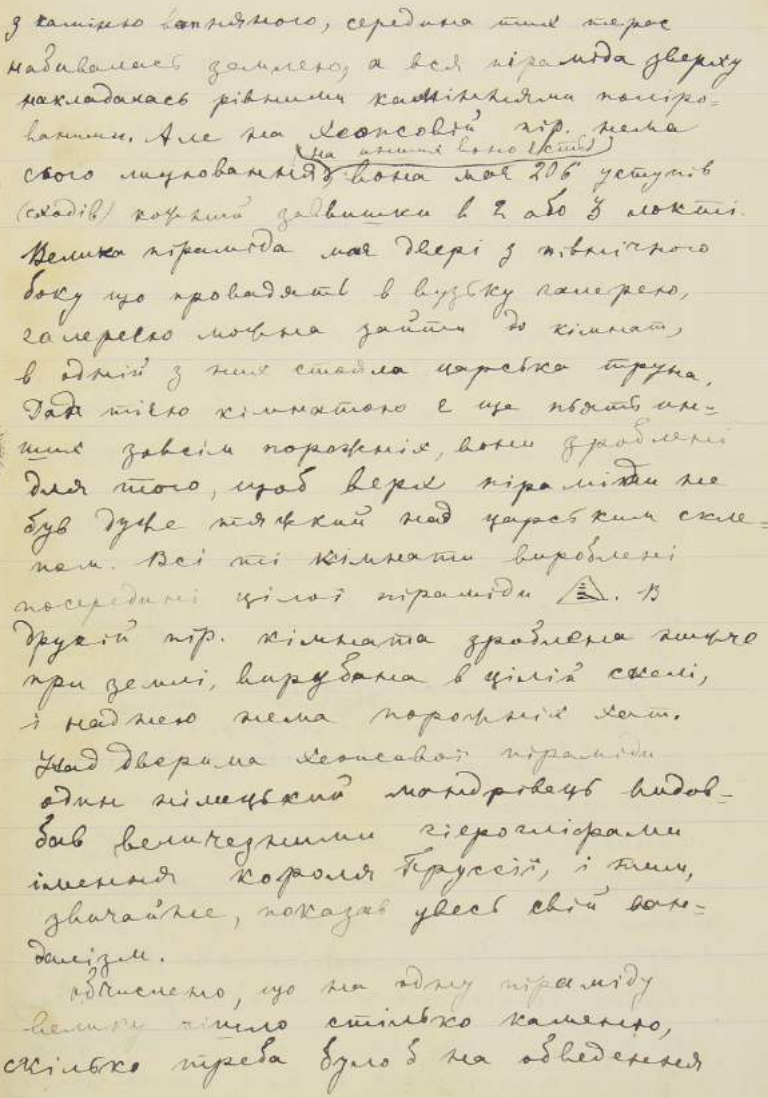 з каміню вапняного, середина тих терас
набивалась землею, а вся піраміда зверху
накладалась рівними каміннями поліро-
ваними. Але на Хеопсовій пір. нема
(на инших воно є ще)
сього лицювання, вона має 206 уступів
(сходів) кожний заввишки в 2 або 3 локті.
Велика піраміда має двері з північного
боку що провадять в вузьку галерею,
галереєю можна зайти до кімнат,
в одній з них стояла царська труна.
Над тією кімнатою є ще пьять ин-
ших зовсім порожніх, вони зроблені
для того, щоб верх піраміди не
був дуже тяжкий над царським скле-
пом. Всі ті кімнати вироблені
посередині цілої піраміди. В
другій пір. кімната зроблена нижче
при землі, вирубана в цілій скелі,
і над нею нема порожніх хат.
Над дверима Хеопсової піраміди
один німецький мандрівець видов-
бав величезними гієрогліфами
імення короля Пруссії, і тим,
звичайне, показав увесь свій ван-
далізм.
Обчислено, що на одну піраміду
велику пішло стілько каменю,
скілько треба було б на обведення